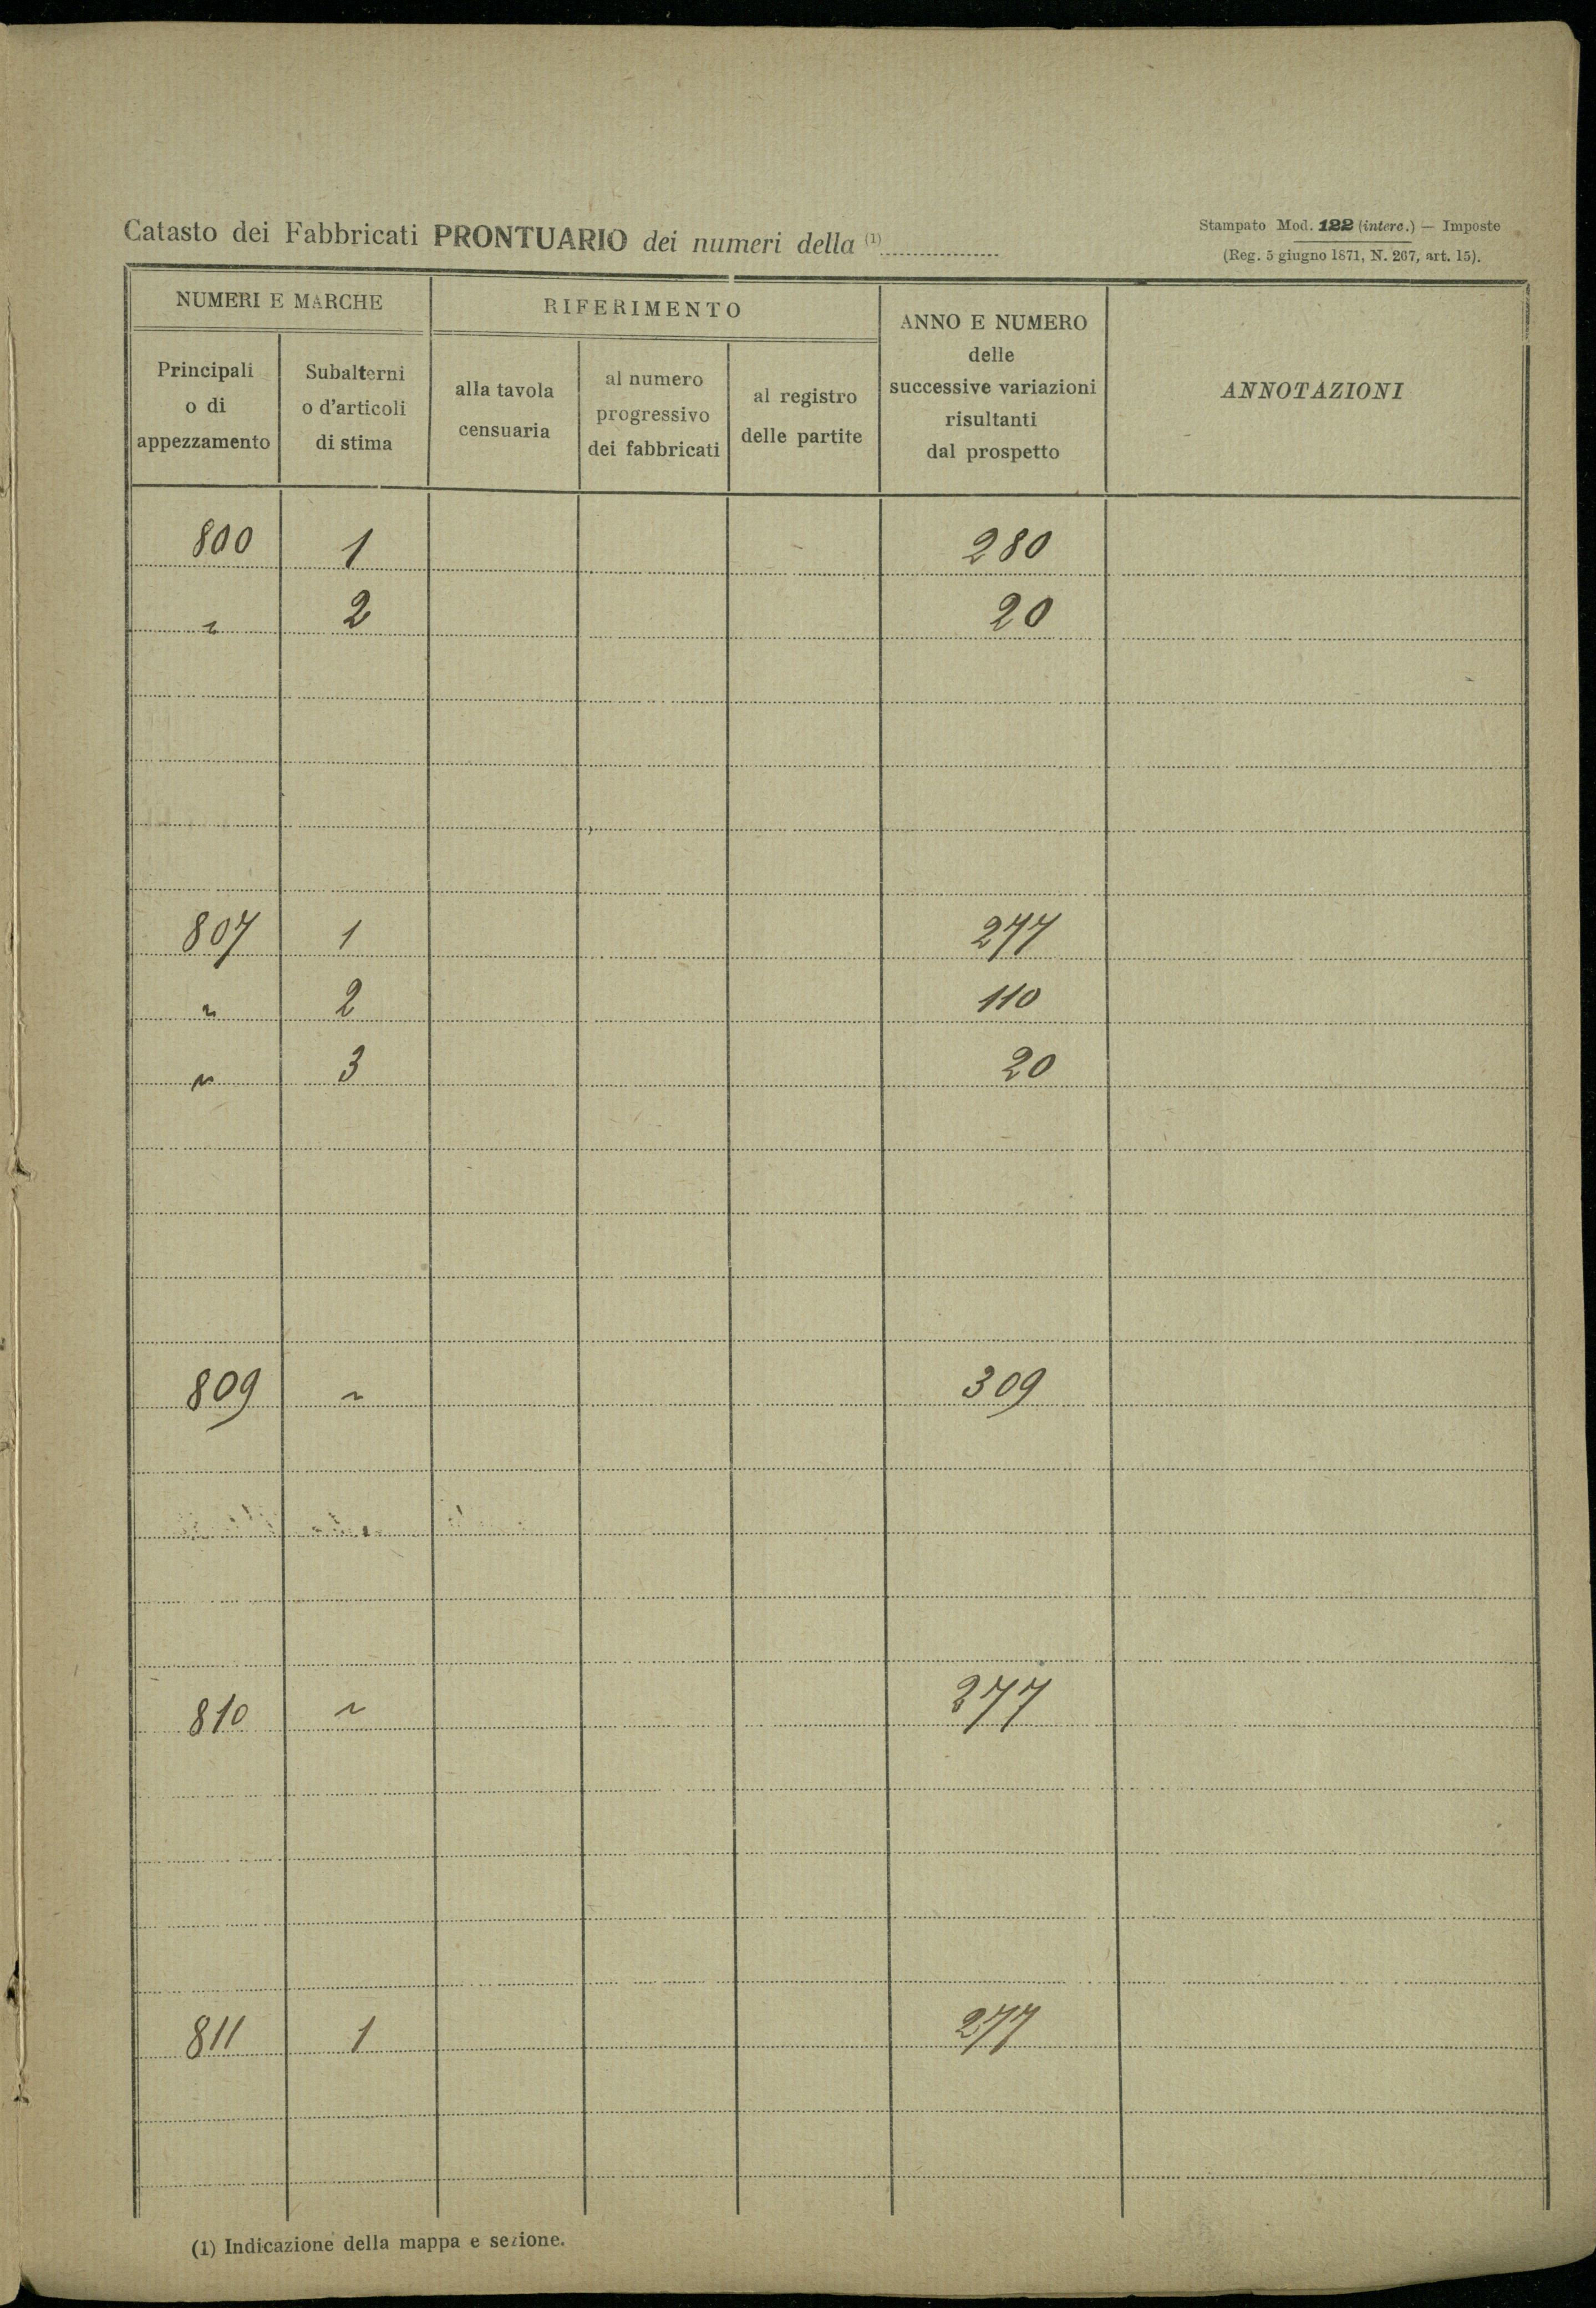 Catasto dei Fabbricati PRONTUARIO dei numeri della (1)
Stampato Mod. 122 (interc.) — Imposte
(Reg. 5 giugno 1871, N. 267, art. 15).
NUMERI E MARCHE
RIFERIMENTO
ANNO E NUMERO
delle
successive variazioni
risultanti
dal prospetto
ANNOTAZIONI
Principali
o di
appezzamento
Subalterni
o d'articoli
di stima
alla tavola
censuaria
al numero
progressivo
dei fabbricati
al registro
delle partite
800 1 280
" 2 20
807 1 277
" 2 110
" 3 20
809 ~ 309
810 ~ 277
811 1 277
(1) Indicazione della mappa e sezione.